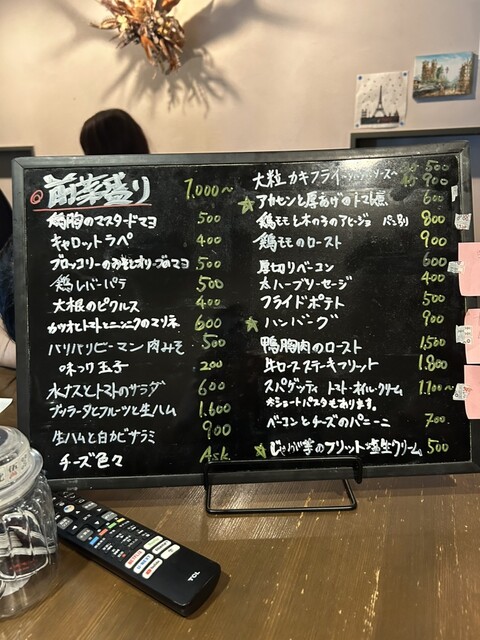 前菜盛り 1,000〜
鶏胸のマスタードマヨ 500
キャロットラペ 400
ブロッコリーのみそとオリーブのマヨ 500
鶏レバーパテ 500
大根のピクルス 400
カツオとトマトとニンニクのマリネ 600
パリパリピーマン肉みそ 500
味つけ玉子 200
水ナスとトマトのサラダ 600
ブッラータとフルーツと生ハム 1,600
生ハムと白カビサラミ 900
チーズ色々 Ask.
大粒カキフライ 500
900
アカセンと厚あげのトマト煮 600
鶏モモと木の子のアヒージョ パン別 800
鶏モモのロースト 900
厚切りベーコン 600
太ハーブソーセージ 400
フライドポテト 500
ハンバーグ 900
鴨胸肉のロースト 1,500
牛ロースステーキフリット 1,800
スパゲッティ トマト・オイル・クリーム 1,100〜
※ショートパスタもあります。
ベーコンとチーズのパニーニ 700
じゃが芋のフリット 塩生クリーム 500
TCL